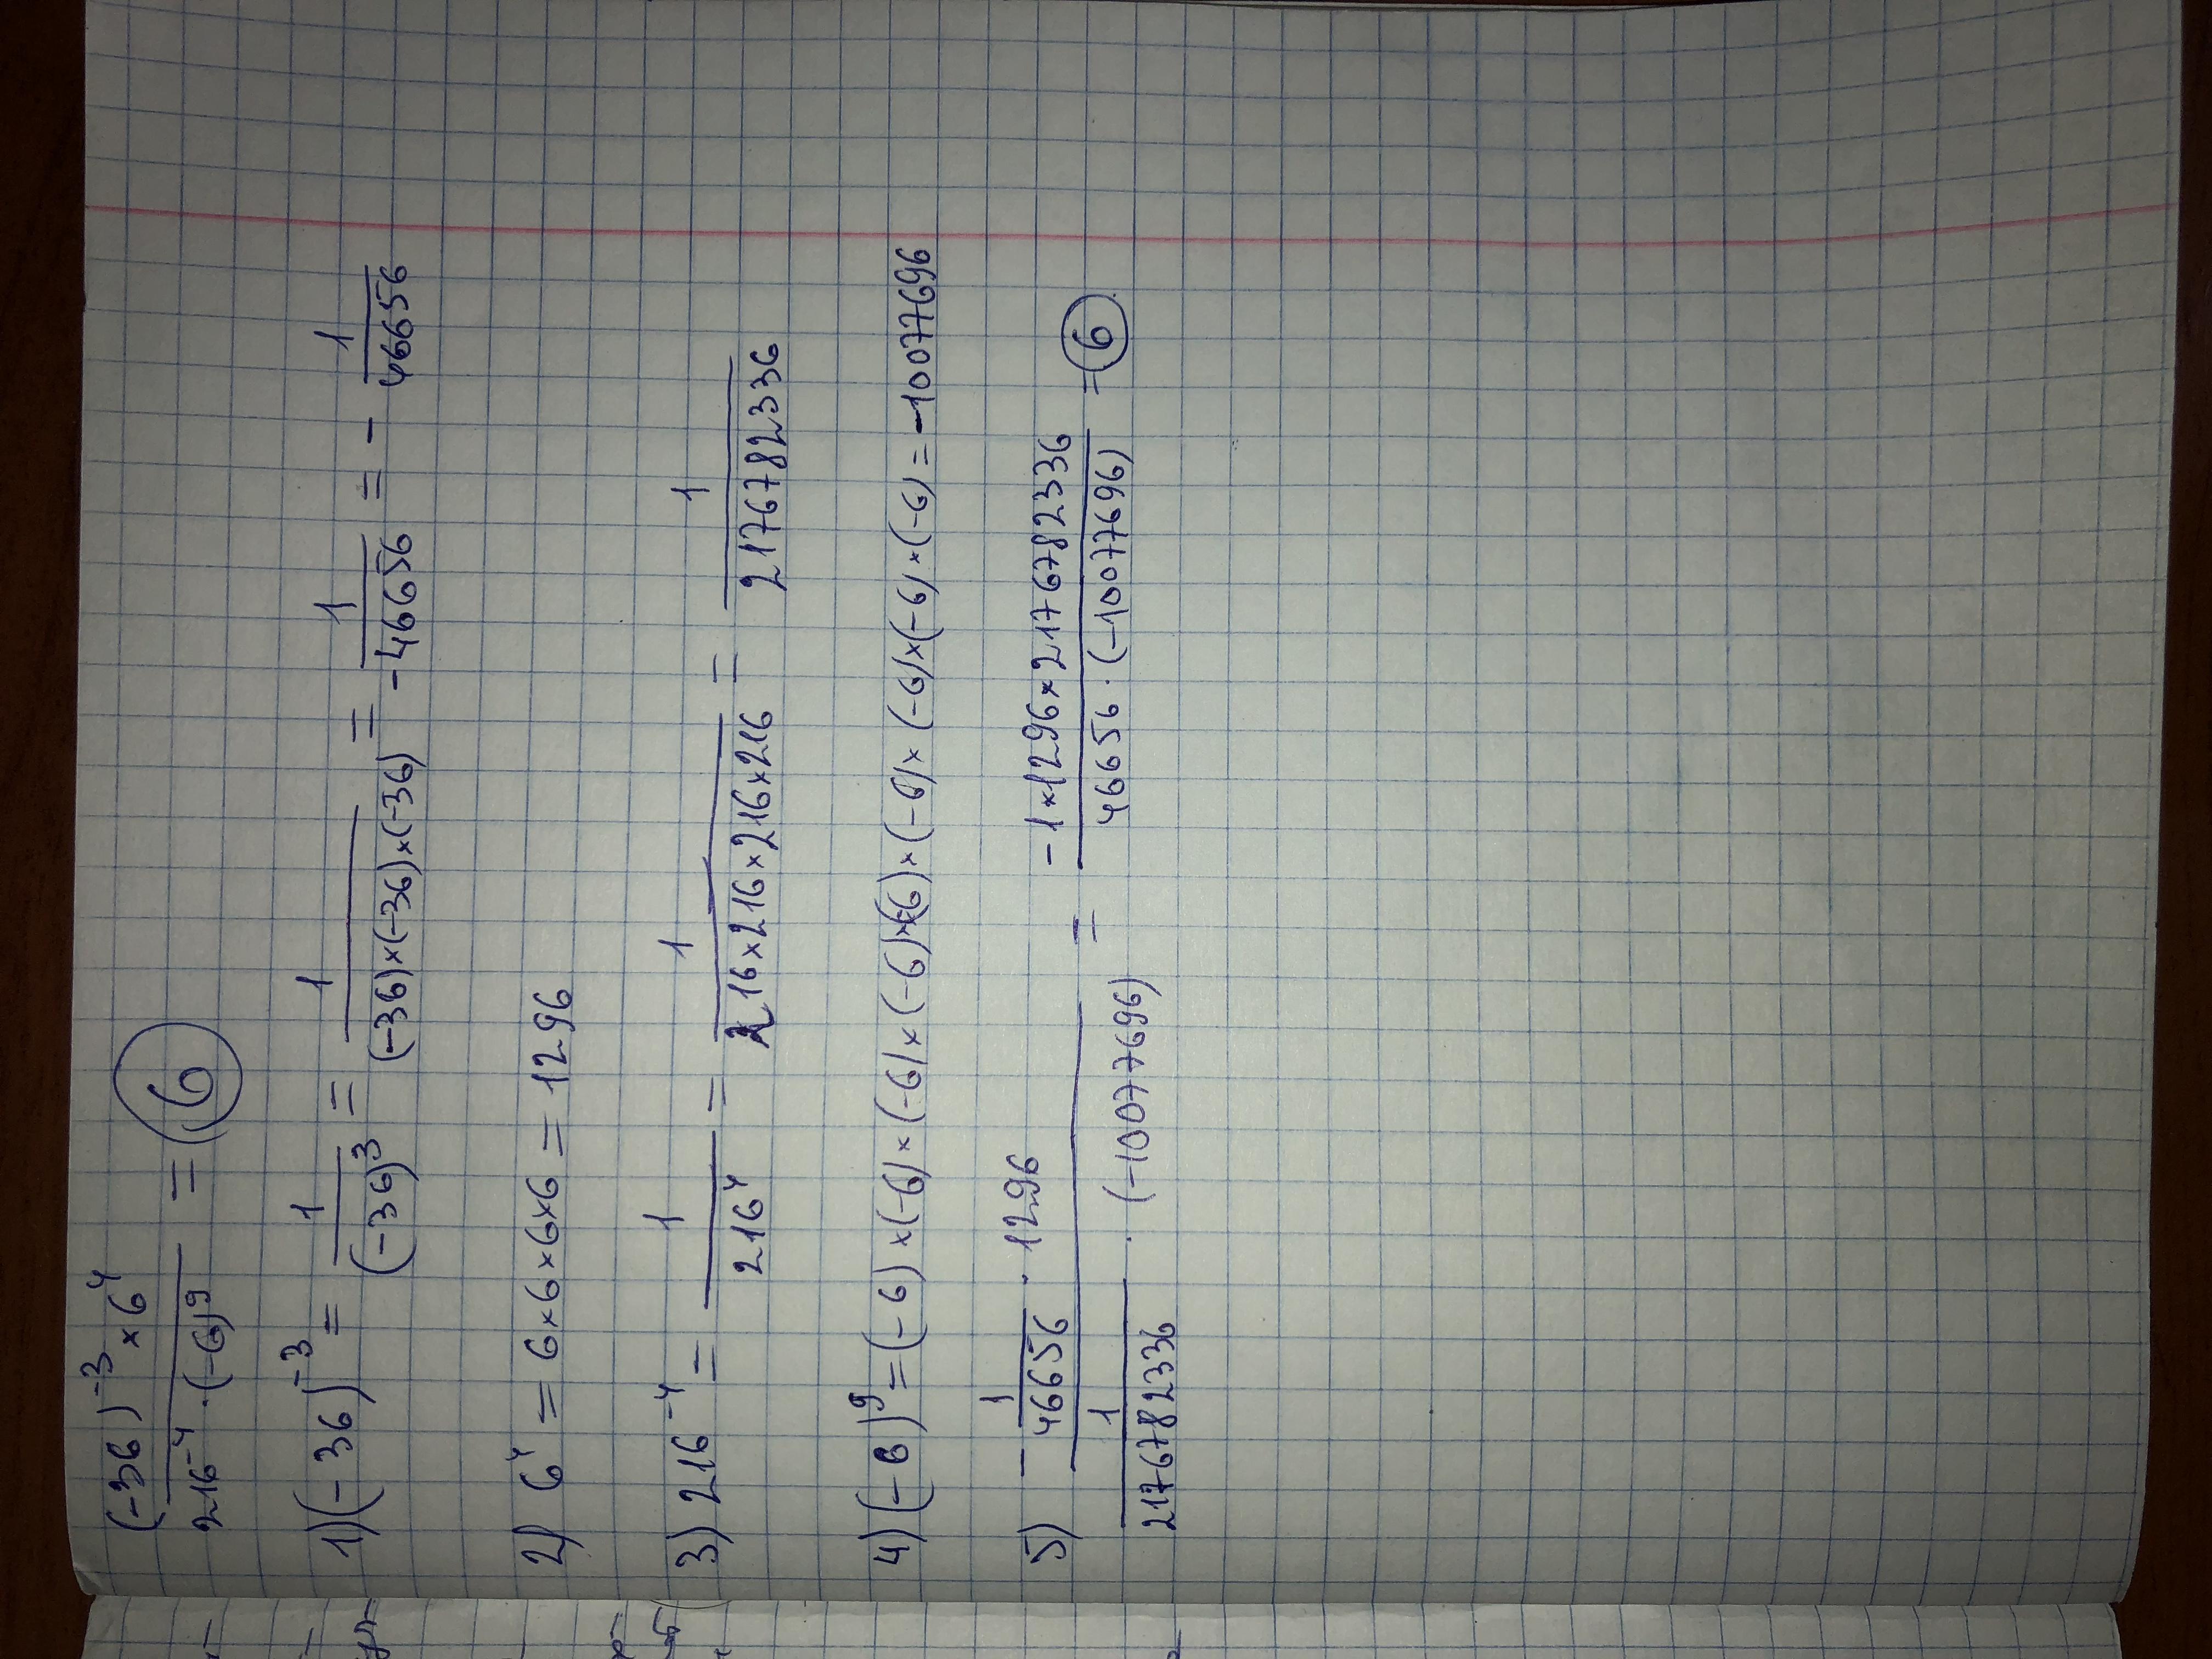 (-36)⁻³ × 6⁴ / 216⁻⁴ · (-6)⁹ = 6
1) (-36)⁻³ = 1 / (-36)³ = 1 / (-36)×(-36)×(-36) = 1 / -46656 = - 1 / 46656
2) 6⁴ = 6×6×6×6 = 1296
3) 216⁻⁴ = 1 / 216⁴ = 1 / 216×216×216×216 = 1 / 2176782336
4) (-6)⁹ = (-6)×(-6)×(-6)×(-6)×(-6)×(-6)×(-6)×(-6)×(-6) = -10077696
5) - 1 / 46656 · 1296 / 1 / 2176782336 · (-10077696) = -1×1296×2176782336 / 46656 · (-10077696) = 6